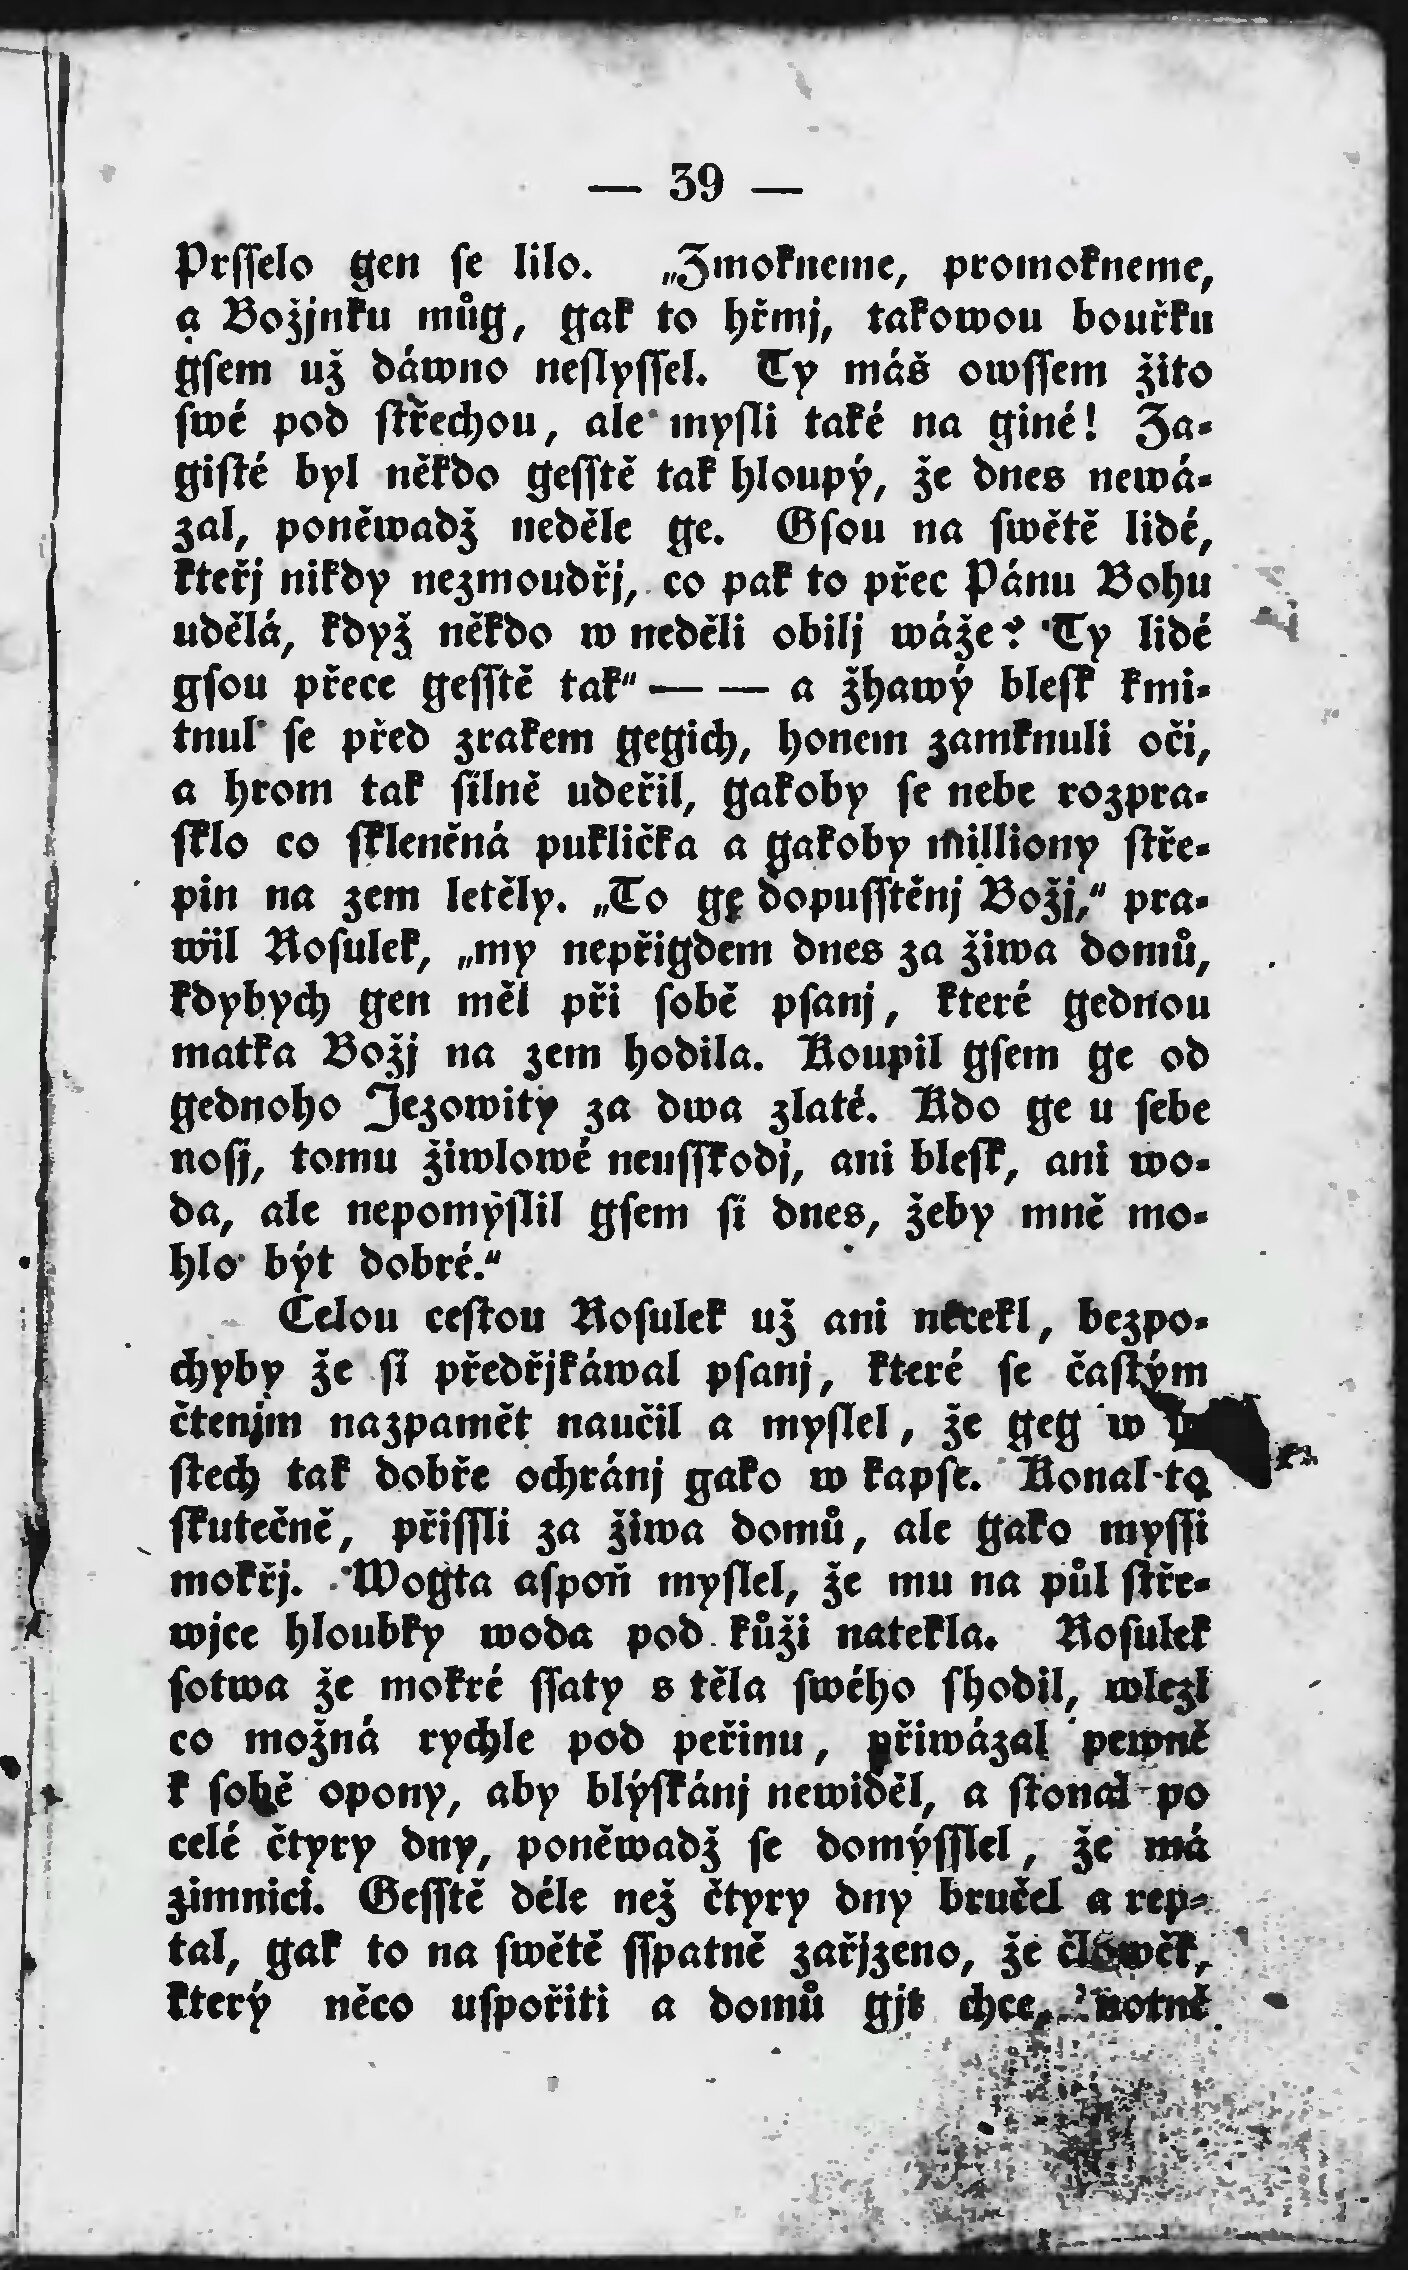 — 39 —
Prſſelo gen ſe lilo. „Zmokneme, promokneme,
a Božjnku můg, gak to hřmj, takowou bouřku
gſem už dáwno neſlyſſel. Ty máš owſſem žito
ſwé pod ſtřechou, ale myſli také na giné! Za-
giſté byl někdo geſſtě tak hloupý, že dnes newá-
zal, poněwadž neděle ge. Gſou na ſwětě lidé,
kteřj nikdy nezmoudřj, co pak to přec Pánu Bohu
udělá, když někdo w neděli obilj wáže? Ty lidé
gſou přece geſſtě tak“ — — a žhawý bleſk kmi-
tnul ſe před zrakem gegich, honem zamknuli oči,
a hrom tak ſilně udeřil, gakoby ſe nebe rozpra-
ſklo co ſkleněná puklička a gakoby milliony ſtře-
pin na zem letěly. „To ge dopuſſtěnj Božj,“ pra-
wil Roſulek, „my nepřigdem dnes za žiwa domů,
kdybych gen měl při ſobě pſanj, které gednou
matka Božj na zem hodila. Koupil gſem ge od
gednoho Jezowity za dwa zlaté. Kdo ge u ſebe
noſj, tomu žiwlowé neuſſkodj, ani bleſk, ani wo-
da, ale nepomyſlil gſem ſi dnes, žeby mně mo-
hlo být dobré.“
Celou ceſtou Roſulek už ani neřekl, bezpo-
chyby že ſi předřjkáwal pſanj, které ſe čaſtým
čtenjm nazpamět naučil a myſlel, že geg w
ſtech tak dobře ochránj gako w kapſe. Konal to
ſkutečně, přiſſli za žiwa domů, ale gako myſſi
mokřj. Wogta aſpoň myſlel, že mu na půl ſtře-
wjce hloubky woda pod kůži natekla. Roſulek
ſotwa že mokré ſſaty s těla ſwého ſhodil, wlezl
co možná rychle pod peřinu, přiwázal pewně
k ſobě opony, aby blýſkánj newiděl, a ſtonal po
celé čtyry dny, poněwadž ſe domýſſlel, že má
zimnici. Geſſtě déle než čtyry dny bručel a rep-
tal, gak to na ſwětě ſſpatně zařjzeno, že člowěk,
který něco uſpořiti a domů gjt chce, notně